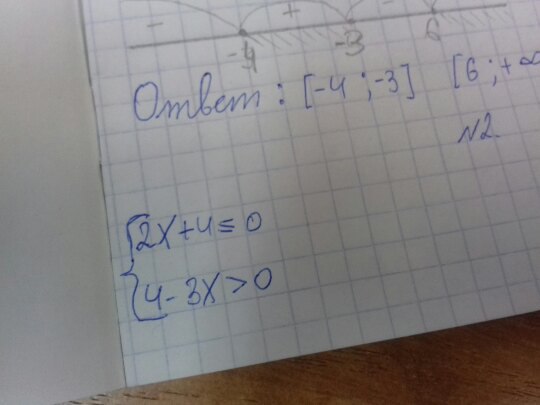 - + -
-4 -3 6
Ответ: [-4 ; -3] [6 ; +∞
N2.
2x+4≤0
4-3x>0